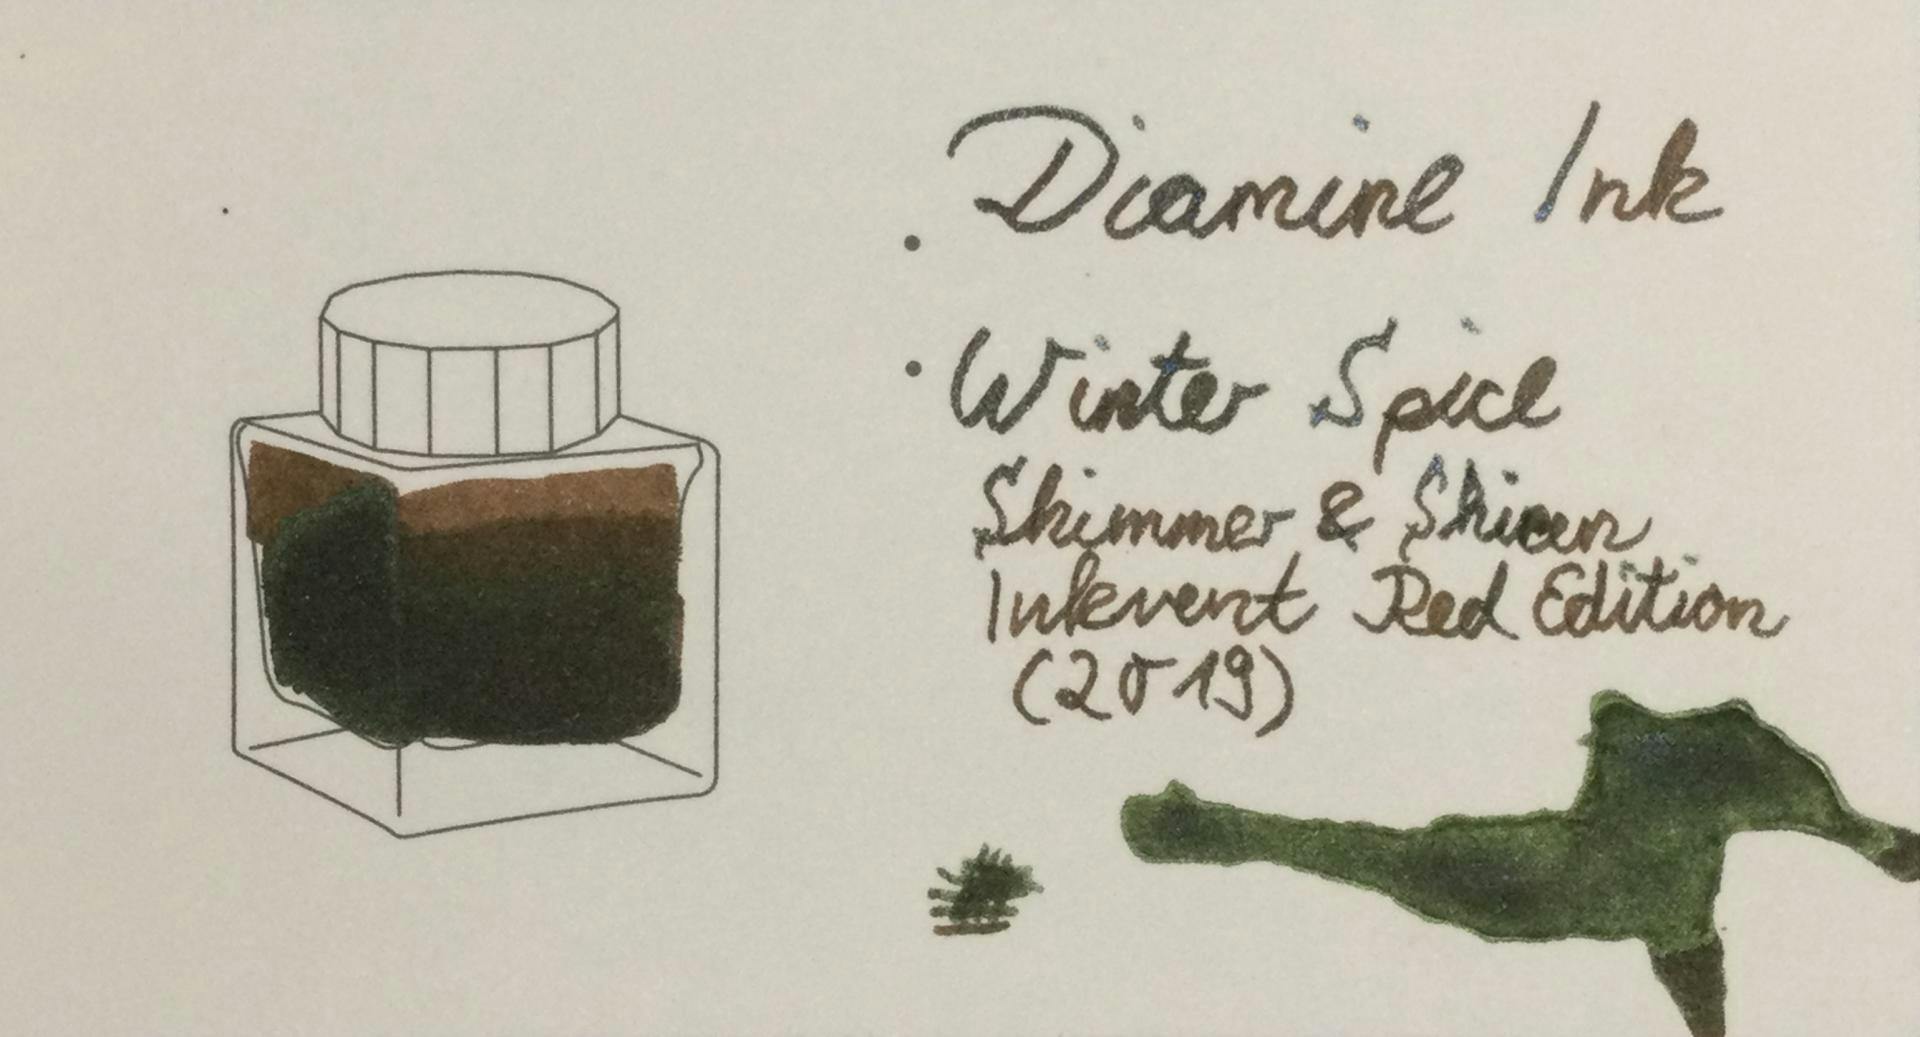 Diamine Ink
Winter Spice
Shimmer & Sheen
Inkvent Red Edition
(2019)